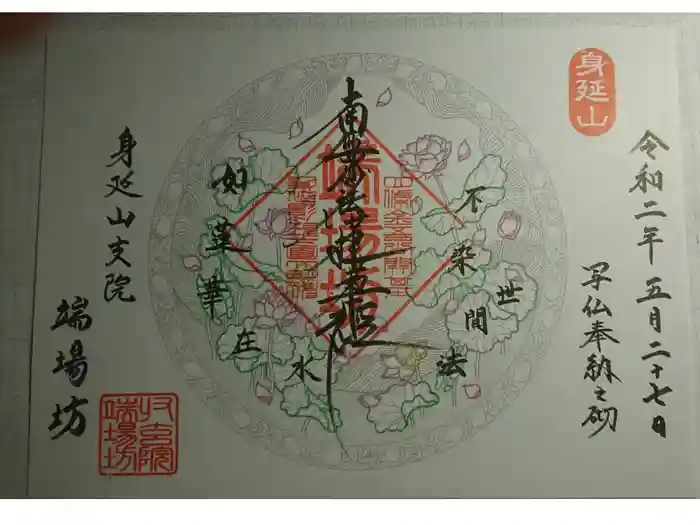 身延山
令和二年 五月二十七日
写仏奉納之砌
不染世間法
南無妙法蓮華経
如蓮華在水
端場坊
身延山支院
端場坊
端場坊